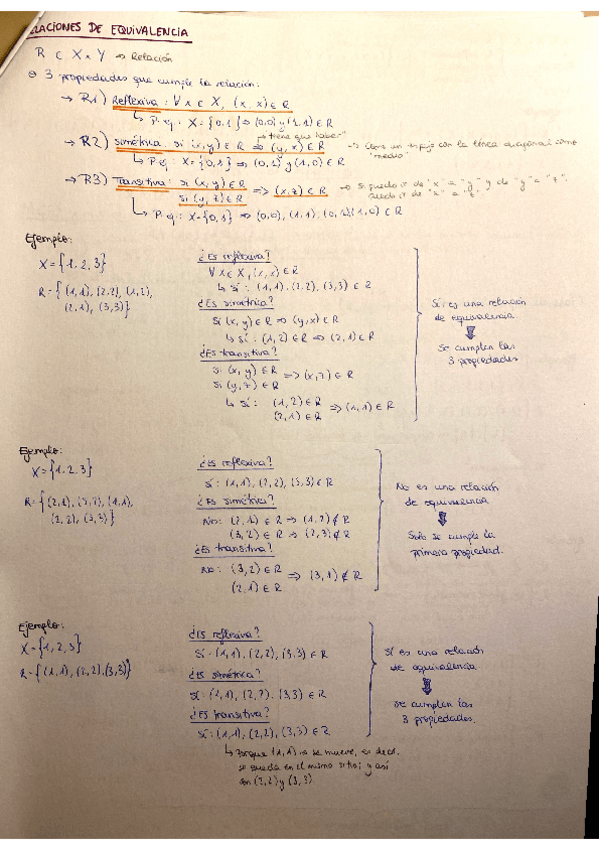 RELACIONES DE EQUIVALENCIA
R ⊂ X x Y → Relación
3 propiedades que cumple la relación:
→ R1) Reflexiva: ∀ x ∈ X, (x, x) ∈ R
↳ P. ej.: X = {0,1} ⇒ (0,0) y (1,1) ∈ R
→ "tiene que haber"
→ R2) Simétrica: si (x, y) ∈ R ⇒ (y, x) ∈ R → un espejo con la línea diagonal como
"medio".
↳ P. ej.: X = {0,1} ⇒ (0,1) y (1,0) ∈ R
→ R3) Transitiva: si (x, y) ∈ R ⇒ (x, z) ∈ R → Si puedo ir de "x" a "y" y de "y" a "z",
si (y, z) ∈ R puedo ir de "x" a "z".
↳ P. ej.: X = {0,1} ⇒ (0,0), (1,1), (0,1), (1,0) ∈ R
Ejemplo:
X = {1, 2, 3}
R = { (1,1), (2,2), (1,2),
(2,1), (3,3) }
¿Es reflexiva?
∀ x ∈ X, (x, x) ∈ R
↳ sí: (1,1), (2,2), (3,3) ∈ R
¿Es simétrica?
Si (x, y) ∈ R ⇒ (y, x) ∈ R
↳ sí: (1,2) ∈ R ⇒ (2,1) ∈ R
¿Es transitiva?
si (x, y) ∈ R
si (y, z) ∈ R ⇒ (x, z) ∈ R
↳ sí: (1,2) ∈ R
(2,1) ∈ R ⇒ (1,1) ∈ R
Sí es una relación
de equivalencia
⇓
Se cumplen las
3 propiedades
Ejemplo:
X = {1, 2, 3}
R = { (2,1), (3,2), (1,1),
(2,2), (3,3) }
¿Es reflexiva?
Sí: (1,1), (2,2), (3,3) ∈ R
¿Es simétrica?
No: (2,1) ∈ R ⇒ (1,2) ∉ R
(3,2) ∈ R ⇒ (2,3) ∉ R
¿Es transitiva?
No: (3,2) ∈ R
(2,1) ∈ R ⇒ (3,1) ∉ R
No es una relación
de equivalencia
⇓
Solo se cumple la
primera propiedad.
Ejemplo:
X = {1, 2, 3}
R = {(1,1), (2,2), (3,3)}
¿Es reflexiva?
Sí: (1,1), (2,2), (3,3) ∈ R
¿Es simétrica?
Sí: (1,1), (2,2), (3,3) ∈ R
¿Es transitiva?
Sí: (1,1), (2,2), (3,3) ∈ R
↳ Porque (1,1) no se mueve, es decir,
se queda en el mismo sitio; y así
con (2,2) y (3,3).
Sí es una relación
de equivalencia
⇓
se cumplen las
3 propiedades.